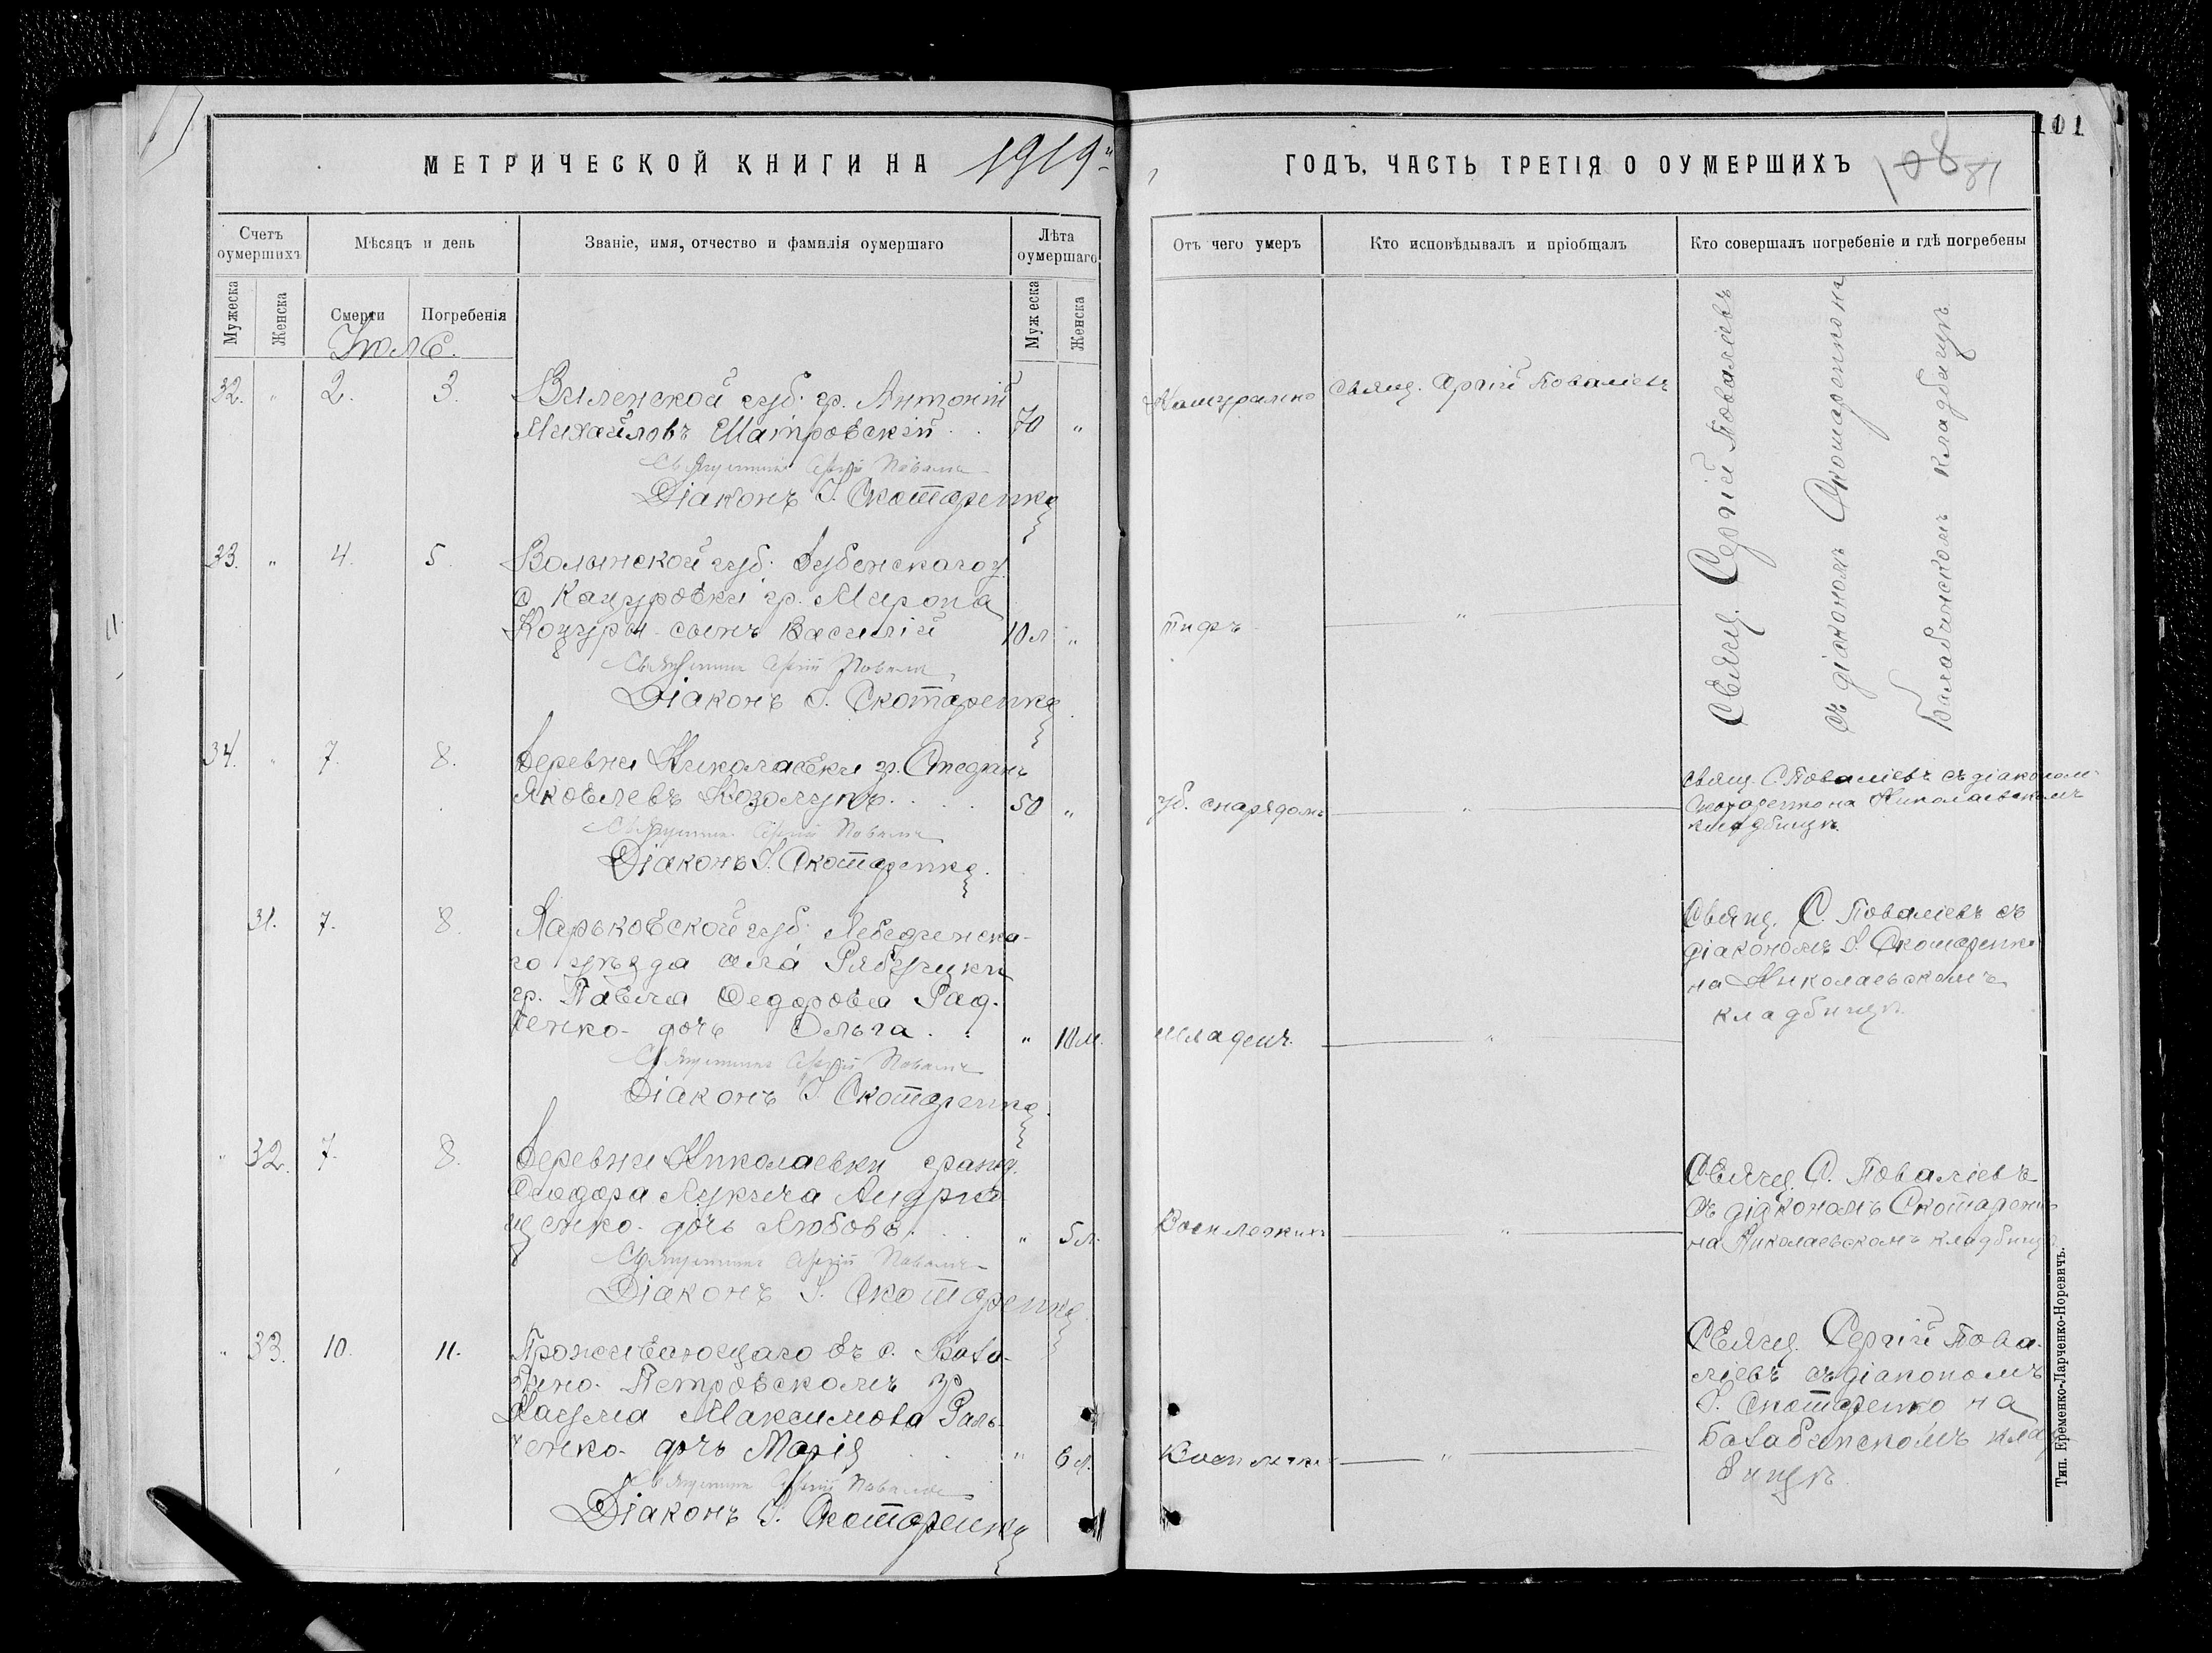 МЕТРИЧЕСКОЙ КНИГИ НА 1919
ГОДЪ, ЧАСТЬ ТРЕТІЯ О ОУМЕРШИХЪ
101
108
81
Счетъ оумершихъ
Мѣсяцъ и день
Званіе, имя, отчество и фамилія оумершаго
Лѣта оумершаго
Отъ чего умеръ
Кто исповѣдывалъ и пріобщалъ
Кто совершалъ погребеніе и гдѣ погребены
Мужеска
Женска
Смерти
Погребенія
Мужеска
Женска
Июль.
32. " 2. 3. Виленской губ. гр. Антоній
Михайловъ Шатровскій 70 "
Натурально
Свящ. Сергій Поваліевъ
Священникъ Сергій
Діаконъ І. Скотаренко
Свящ. Сергій Поваліевъ
съ діакономъ Скотаренко на
Балабинскомъ кладбищѣ
33. " 4. 5. Волынской губ. Дубенскаго у.
гр. Мирона
сынъ Василій 10 л "
тифъ
"
Священникъ Сергій
Діаконъ І. Скотаренко
34. " 7. 8. Деревни Николаевки гр. Стефанъ
Яковлевъ Козолупъ 50 "
уб. снарядомъ
"
Свящ. С. Поваліевъ съ діакономъ
Скотаренко на Николаевскомъ
кладбищѣ.
Священникъ Сергій
Діаконъ І. Скотаренко.
31. 7. 8. Харьковской губ. Лебединска-
го уѣзда села
гр. Павла Федорова Рад-
ченко дочь Ольга " 10 м.
младенч.
"
Свящ. С. Поваліевъ съ
діакономъ І. Скотаренко
на Николаевскомъ
кладбищѣ.
Священникъ Сергій
Діаконъ І. Скотаренко.
" 32. 7. 8. Деревни Николаевки гражд.
Феодора Лукича Андрю-
щенко дочь Любовь " 5 л.
Восп легкихъ
"
Свящ. С. Поваліевъ
съ діакономъ Скотаренко
на Николаевскомъ кладбищѣ
Священникъ Сергій
Діаконъ І. Скотаренко
" 33. 10. 11. Проживающаго въ с. Бала-
бино Петровскомъ гр
Наума Максимова Галь-
ченко дочь Марія " 6 л.
Восп легких
"
Свящ. Сергій Пова-
ліевъ съ діакономъ
І. Скотаренко на
Балабинскомъ клад-
бищѣ.
Священникъ Сергій
Діаконъ І. Скотаренко
Тип. Еременко-Ларченко-Норевичъ.